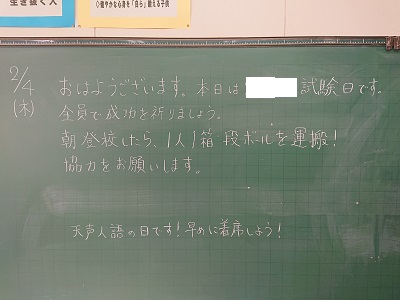 生き抜く人
◇健やかな心身を「自ら」鍛える子供
2/4
(木)
おはようございます。本日は 試験日です。
全員で成功を祈りましょう。
朝登校したら、1人1箱段ボールを運搬!
協力をお願いします。
天声人語の日です!早めに着席しよう!